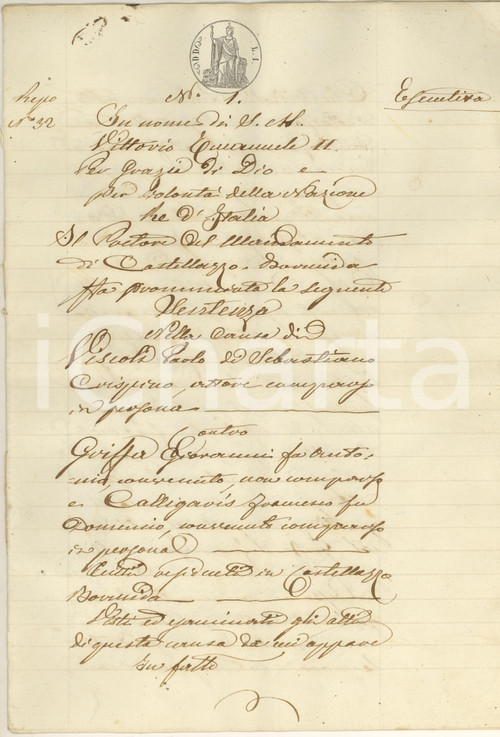 Repo
N° 32
N. 1.
Esecutiva
In nome di S. M.
Vittorio Emanuele II.
Per Grazia di Dio e
per volontà della Nazione
Re d'Italia
Il Pretore del Mandamento
di Castellazzo Bormida
Ha pronunciato la seguente
Sentenza
Nella causa di
Viscoli Paolo di Sebastiano
Crispino, attore comparso
in persona
contro
Griffa Giovanni fu Anto-
nio, convenuto, non comparso
e Calligaris Francesco fu
Domenico, convenuto comparso
in persona
tutti residenti in Castellazzo
Bormida
Visti ed esaminati gli atti
di questa causa da cui appare
in fatto
iCharta